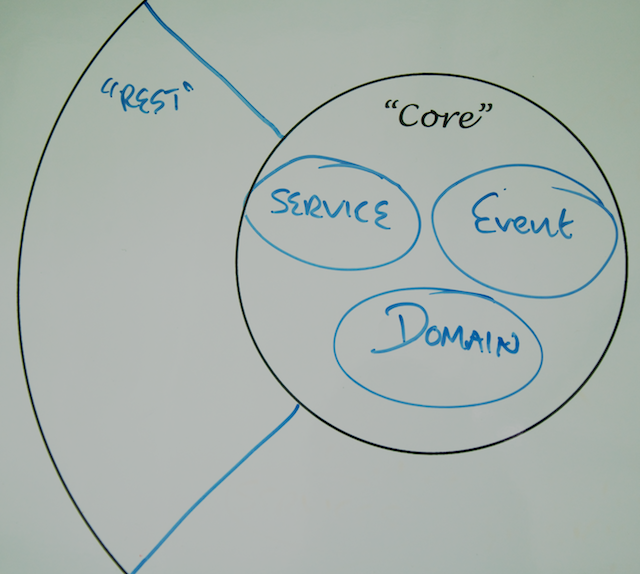 "REST"
"Core"
SERVICE
Event
DOMAIN